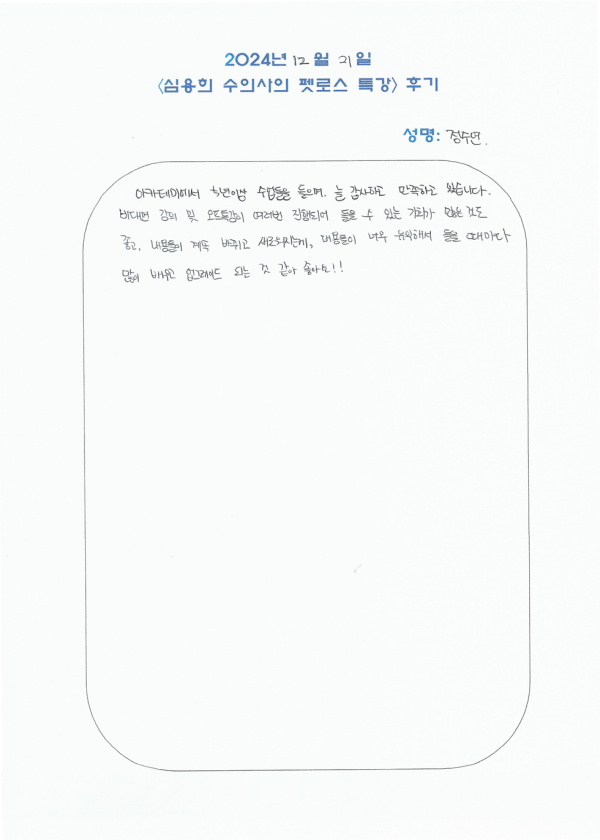 2024년 12월 21일
<심용희 수의사의 펫로스 특강> 후기
성명: 정수연.
아카데미에서 1년이상 수업들을 들으며, 늘 감사하고 만족하고 있습니다.
비대면 강의 및 오프특강이 여러번 진행되어 들을 수 있는 기회가 많은 것도
좋고, 내용들이 계속 바뀌고 새로워지는게, 내용들이 너무 유익해서 들을 때마다
많이 배우고 업그레이드 되는 것 같아 좋아요!!